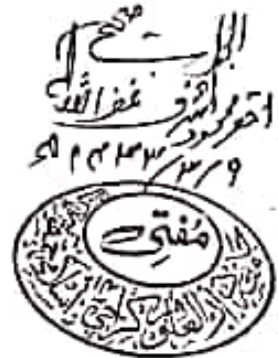 الجواب صحیح
احقر محمود اشرف غفر اللہ لہ
۹/۳/۱۴۳۳ھ
مفتی
جامعہ دارالعلوم کراچی